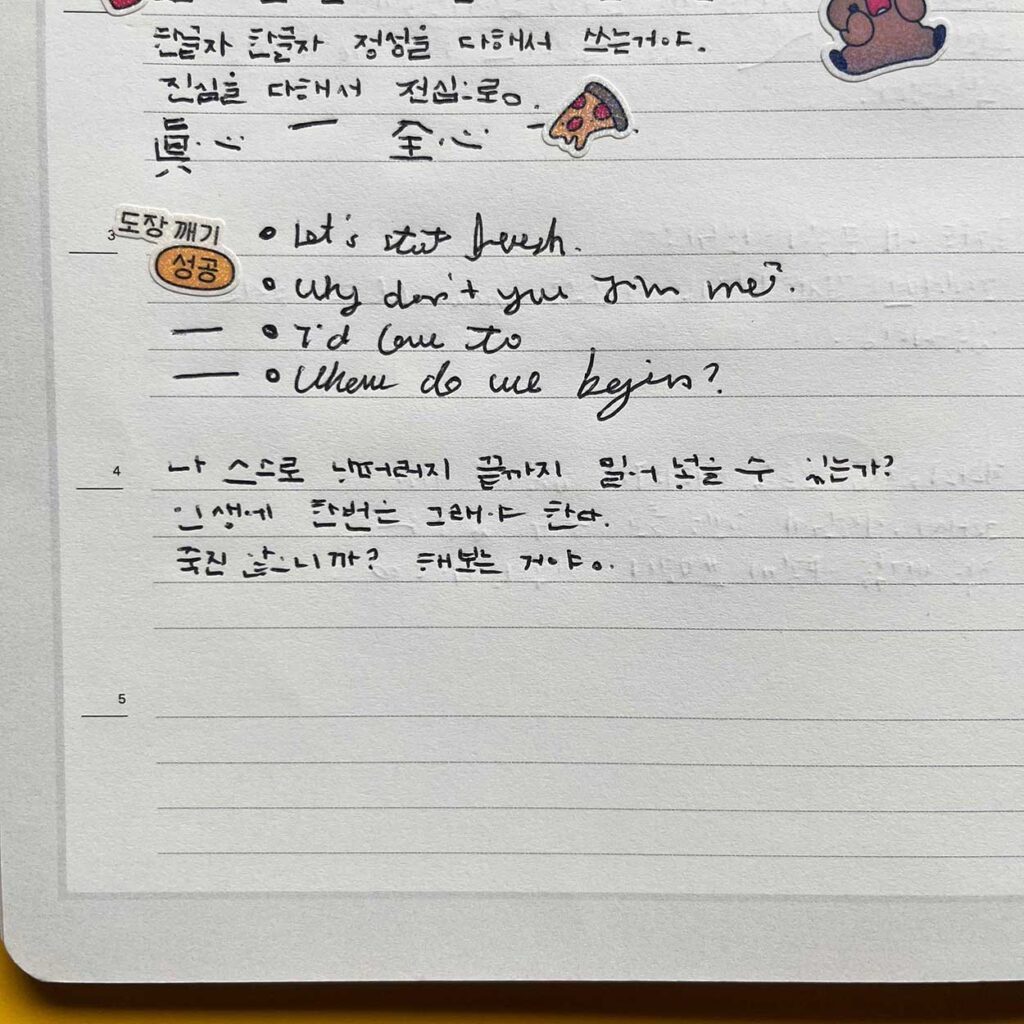 한글자 한글자 정성을 다해서 쓰는거야.
진심을 다해서 전심으로.
眞心 — 全心
3 도장 깨기
성공
• Let's start fresh.
• Why don't you join me?
• I'd love to
• Where do we begin?
4 나 스스로 낭떠러지 끝까지 밀어 넣을 수 있는가?
인생에 한번은 그래야 한다.
죽진 않으니까? 해보는 거야.
5